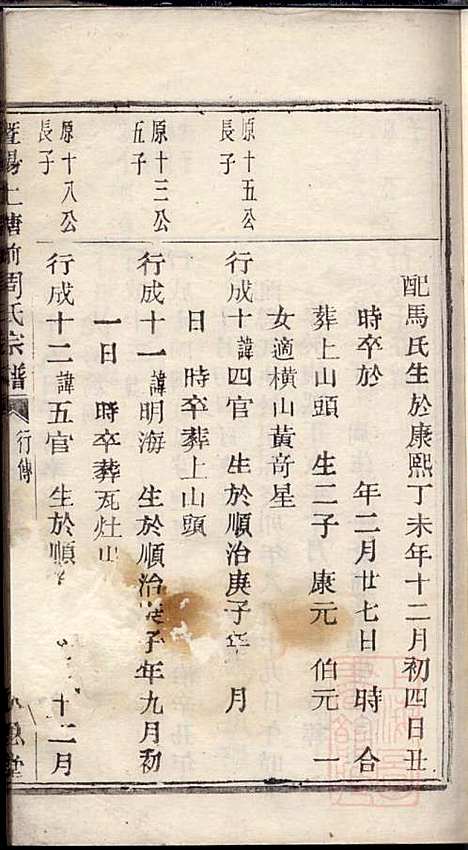 配馬氏生於康熙丁未年十二月初四日丑
時卒於 年二月廿七日 時 合
葬上山頭 生二子 康元 伯元 一
女適橫山黃奇星
原十五公
長子
行成十諱四官 生於順治庚子年 月
日 時卒葬上山頭
原十三公
五子
行成十一諱明海 生於順治庚子年九月初
一日 時卒葬瓦灶山
原十八公
長子
行成十二諱五官 生於順 十二月
暨陽上塘前周氏宗譜 行傳 堂